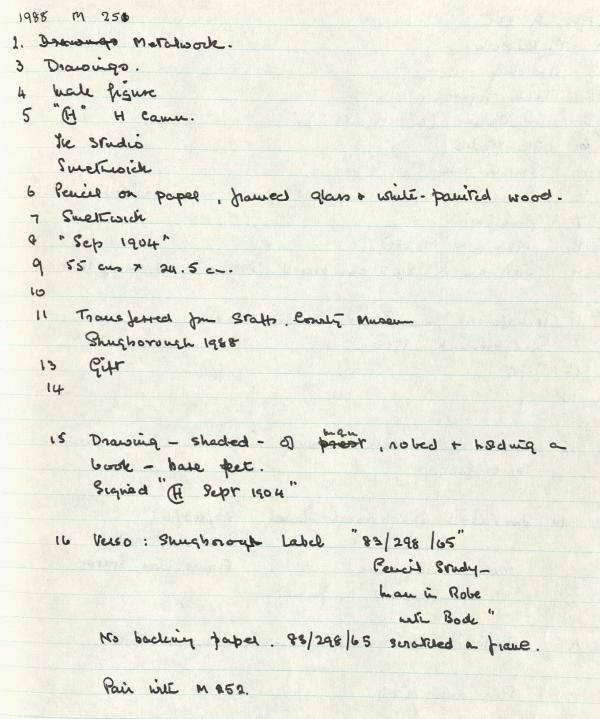 1988 M 250
1. Drawings Metalwork.
3 Drawings.
4 Male figure
5 "H" H Camm.
The Studio
Smethwick
6 Pencil on paper, framed glass & white-painted wood.
7 Smethwick
8 "Sep 1904"
9 55 cms x 24.5 cm.
10
11 Transferred from Staffs. County Museum
Shugborough 1988
13 Gift
14
15 Drawing - shaded - of priest man, robed + holding a
book - bare feet.
Signed "H Sept 1904"
16 Verso: Shugborough Label "83/298/65"
Pencil Study-
Man in Robe
with Book"
No backing paper. 83/298/65 scratched on frame.
Pair with M 252.